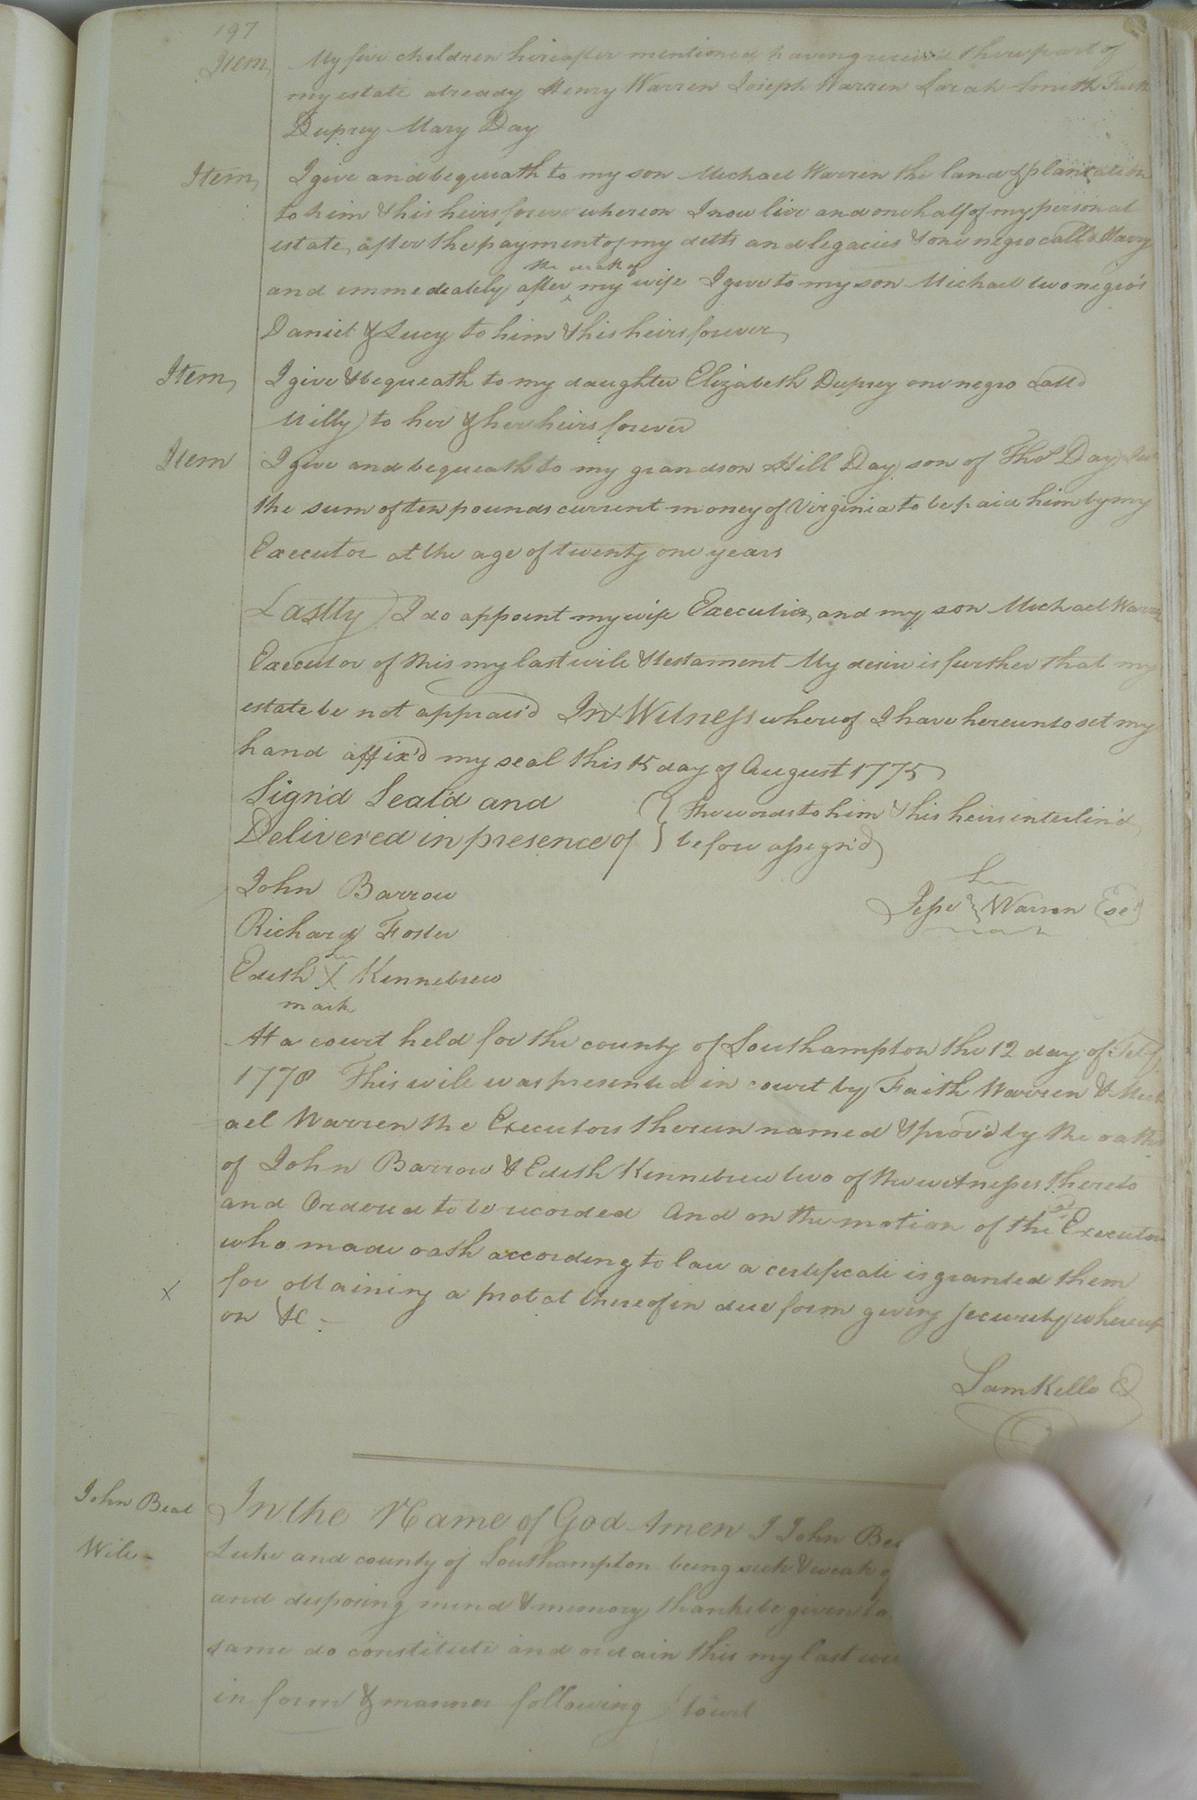 197
Item My five children hereafter mentioned having receiv'd there part of
my estate already Henry Warren Joseph Warren Sarah Smith Faith
Duprey Mary Day
Item, I give and bequeath to my son Michael Warren the land & plantation
to him & his heirs forever whereon I now live and one half of my personal
estate, after the payment of my detts and legacies & one negro call'd Harry
the death of
and immediately after my wife I give to my son Michael two negro's
Daniel & Lucy to him & his heirs forever,
Item, I give & bequeath to my daughter Elizabeth Duprey one negro call'd
Milly to her & her heirs forever
Item I give and bequeath to my grandson Hill Day son of Thos Day
the sum of ten pounds current money of Virginia to be paid him by my
Executor at the age of twenty one years
Lastly I do appoint my wife Executrix, and my son Michael Warren
Executor of this my last will & testament My desire is further that my
estate be not apprais'd In Witness whereof I have hereunto set my
hand affix'd my seal this 15 day of August 1775
Sign'd Seal'd and { the words to him & his heirs interlin'd
Delivered in presence of } before assign'd
John Barrow
his
Jesse Warren Seal
mark
Richard Foster
his
Edith X Kennebrew
mark
At a court held for the county of Southampton the 12 day of Feby
1778 This will was presented in court by Faith Warren & Mich
ael Warren the Executors therein named & prov'd by the oaths
of John Barrow & Edith Kennebrew two of the witnesses thereto
and Ordered to be recorded And on the motion of the sd Executors
who made oath according to law a certificate is granted them
X for obtaining a probat thereof in due form giving security whereup
on &c -
Sam Kello
John Beal In the Name of God Amen I John Be
Will - Luke and county of Southampton being sick & weak of
and disposing mind & memory thanks be given to
same do constitute and ordain this my last wi
in form & manner following towit